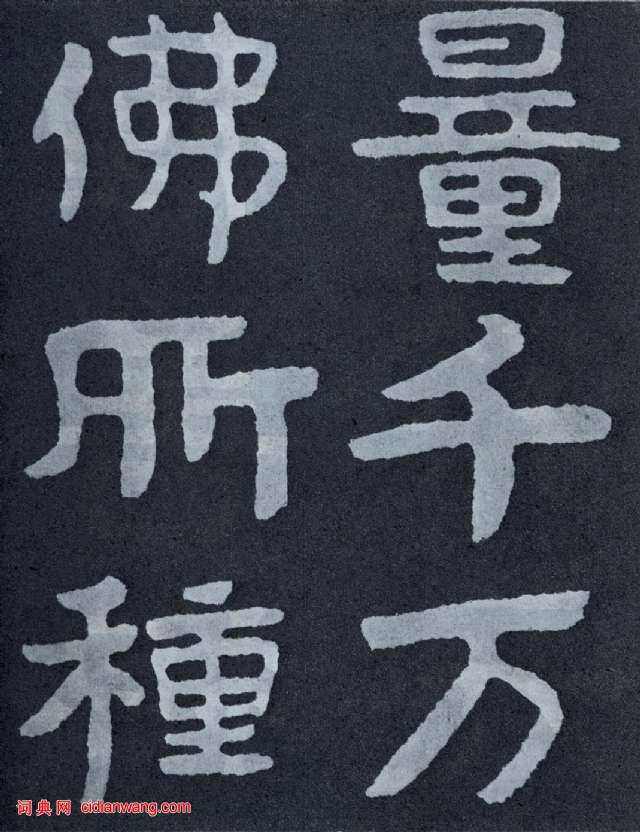 量千万
佛所種
词典网 cidianwang.com